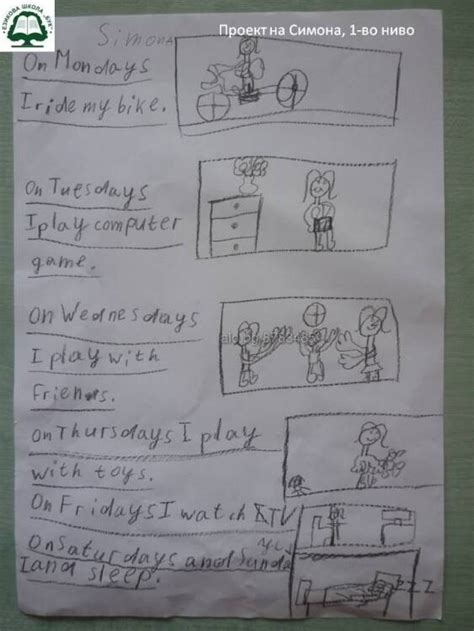 ЕЗИКОВА ШКОЛА "БУК"
Проект на Симона, 1-во ниво
Simona
On Mondays
I ride my bike.
On Tuesdays
I play computer
game.
On Wednesdays
I play with
Friends.
On Thursdays I play
with toys.
On Fridays I watch TV
On Saturdays and Sundays
I and sleep.
ZZZ